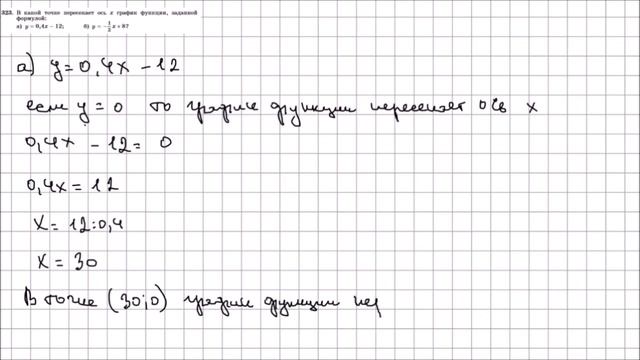 323. В какой точке пересекает ось x график функции, заданной
формулой:
а) y = 0,4x − 12; б) y = −1/2 x + 8?
а) y = 0,4x − 12
если y = 0 то график функции пересекает ось x
0,4x − 12 = 0
0,4x = 12
x = 12:0,4
x = 30
В точке (30;0) график функции пер